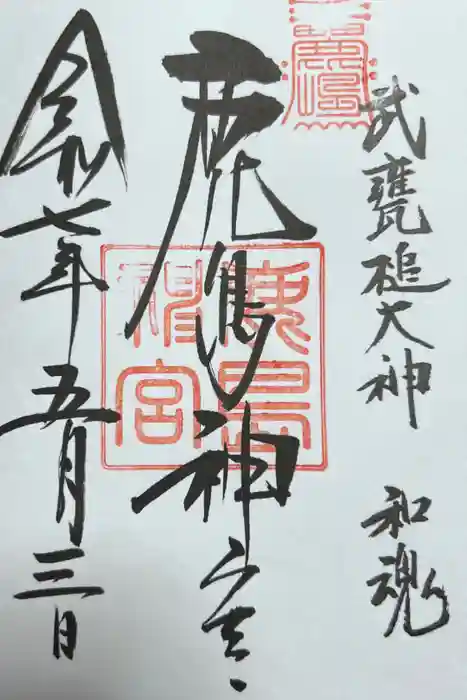 武甕槌大神
和魂
鹿島神宮
鹿島
神宮
令和七年五月三日